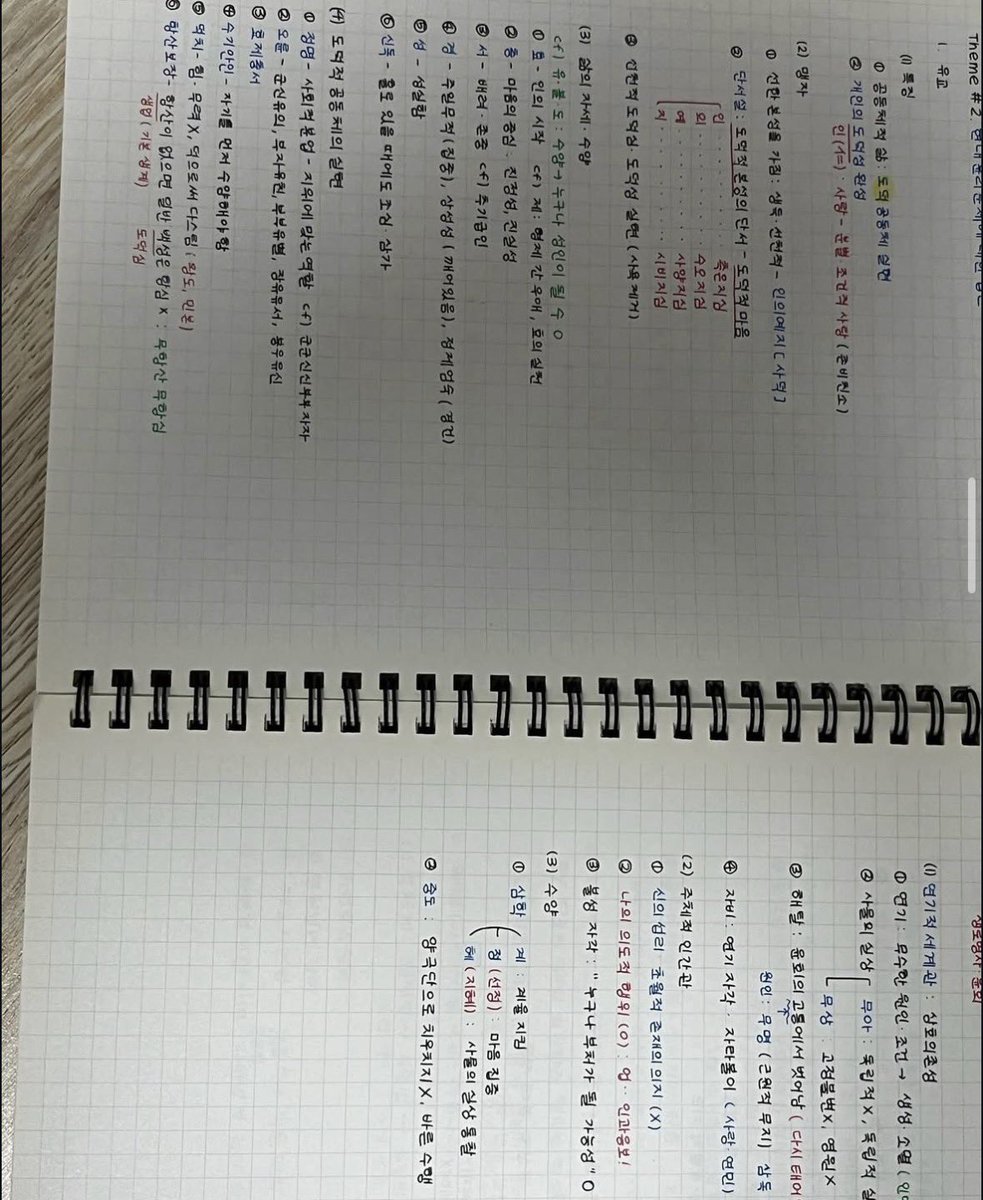 Theme #2 현대 윤리 문제에 대한
1. 유교
(1) 특징
① 공동체적 삶 : 도덕 공동체 실현
② 개인의 도덕성 완성
인(仁) : 사랑 - 분별 조건적 사랑 (존비친소)
(2) 맹자
① 선한 본성을 가짐 : 생득·선천적 - 인의예지 [사덕]
② 단서설 : 도덕적 본성의 단서 - 도덕적 마음
인 · · · · · · · 측은지심
의 · · · · · · · 수오지심
예 · · · · · · · 사양지심
지 · · · · · · · 시비지심
③ 선천적 도덕심·도덕성 실현 (사욕 제거)
(3) 삶의 자세·수양
cf) 유·불·도 : 수양 → 누구나 성인이 될 수 O
① 효 - 인의 시작 cf) 제 : 형제 간 우애, 효의 실천
② 충 - 마음의 중심 : 진정성, 진실성
③ 서 - 배려·존중 cf) 추기급인
④ 경 - 주일무적 (집중), 상성성 (깨어있음), 정제엄숙 (경건)
⑤ 성 - 성실함
⑥ 신독 - 홀로 있을 때에도 조심·삼가
(4) 도덕적 공동체의 실현
① 정명 - 사회적 본양 - 지위에 맞는 역할 cf) 군군신신부부자자
② 오륜 - 군신유의, 부자유친, 부부유별, 장유유서, 붕우유신
③ 효제충서
④ 수기안인 - 자기를 먼저 수양해야 함
⑤ 덕치 - 힘·무력 X, 덕으로써 다스림 (왕도, 민본)
⑥ 항산보장 - 항산이 없으면 일반 백성은 항심 X : 무항산 무항심
생업 (기본 생계) 도덕심
생로병사 윤회
(1) 연기적 세계관 : 상호의존성
① 연기 : 무수한 원인·조건 → 생성, 소멸
② 사물의 실상 무아 : 독립적 X, 독립적
무상 : 고정불변 X, 영원 X
③ 해탈 : 윤회의 고통에서 벗어남 (다시 태어
원인 : 무명 (근원적 무지) 삼독
④ 자비 : 연기 자각 · 자타불이 (사랑 연민)
(2) 주체적 인간관
① 신의 섭리·초월적 존재의 의지 (X)
② 나의 의도적 행위 (O) : 업·인과응보!
③ 불성 자각 : "누구나 부처가 될 가능성" O
(3) 수양
① 삼학 계 : 계율 지킴
정 (선정) : 마음 집중
혜 (지혜) : 사물의 실상 통찰
② 중도 : 양극단으로 치우치지 X, 바른 수행